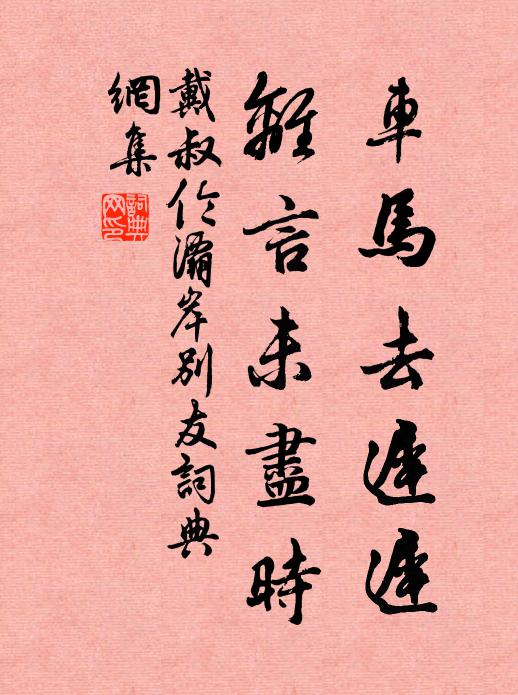 車馬去遲遲
離言未盡時
戴叔倫灞岸別友詞典
網集
詞典網印